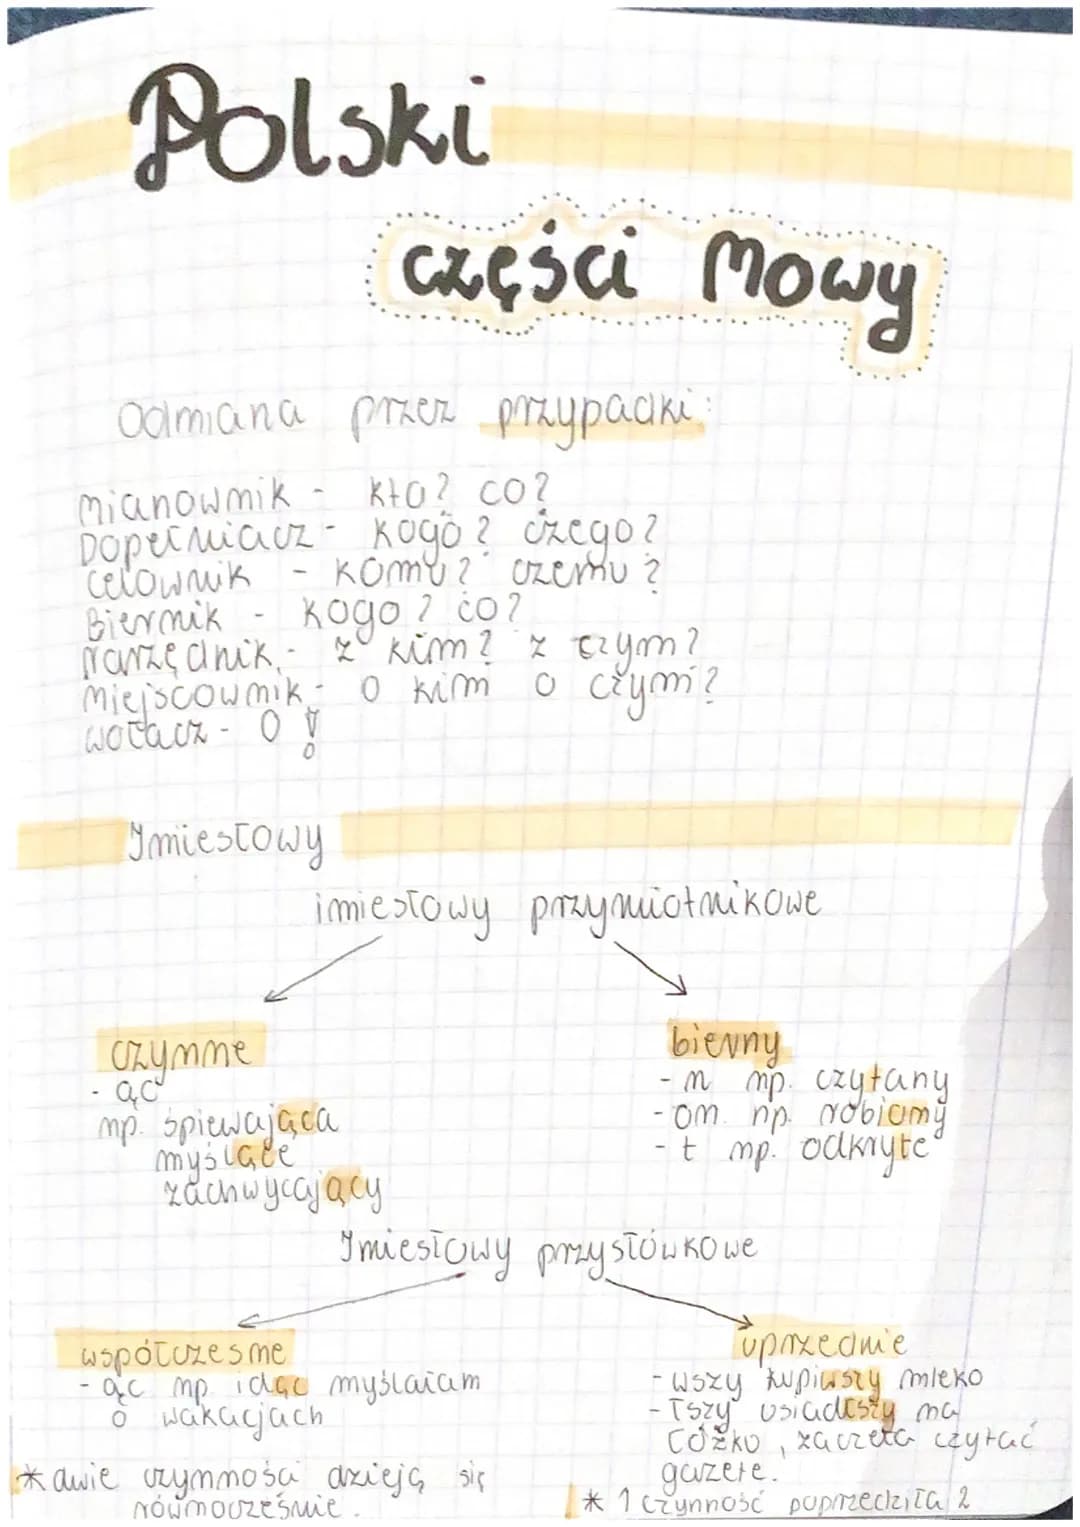 Polski
części Mowy
Odmiana przez przypadki:
Mianownik - kto? co?
Dopełniacz - kogo? czego?
Celownik - komu? czemu?
Biernik - kogo? co?
Narzędnik - z kim? z czym?
Miejscownik - o kim o czym?
Wołacz - O!
Imiesłowy
imiesłowy przymiotnikowe
czynne
- ąc
np. śpiewająca
myślące
zachwycający
bierny
- n np. czytany
- om np. robiomy
- t np. odkryte
Imiesłowy przysłówkowe
współczesne
- ąc np. idąc myślałam
o wakacjach
* dwie czynności dzieją się
równocześnie.
uprzednie
- wszy kupiwszy mleko
- łszy usiadłszy na
łóżko, zaczęła czytać
gazete.
* 1 czynność poprzedziła 2